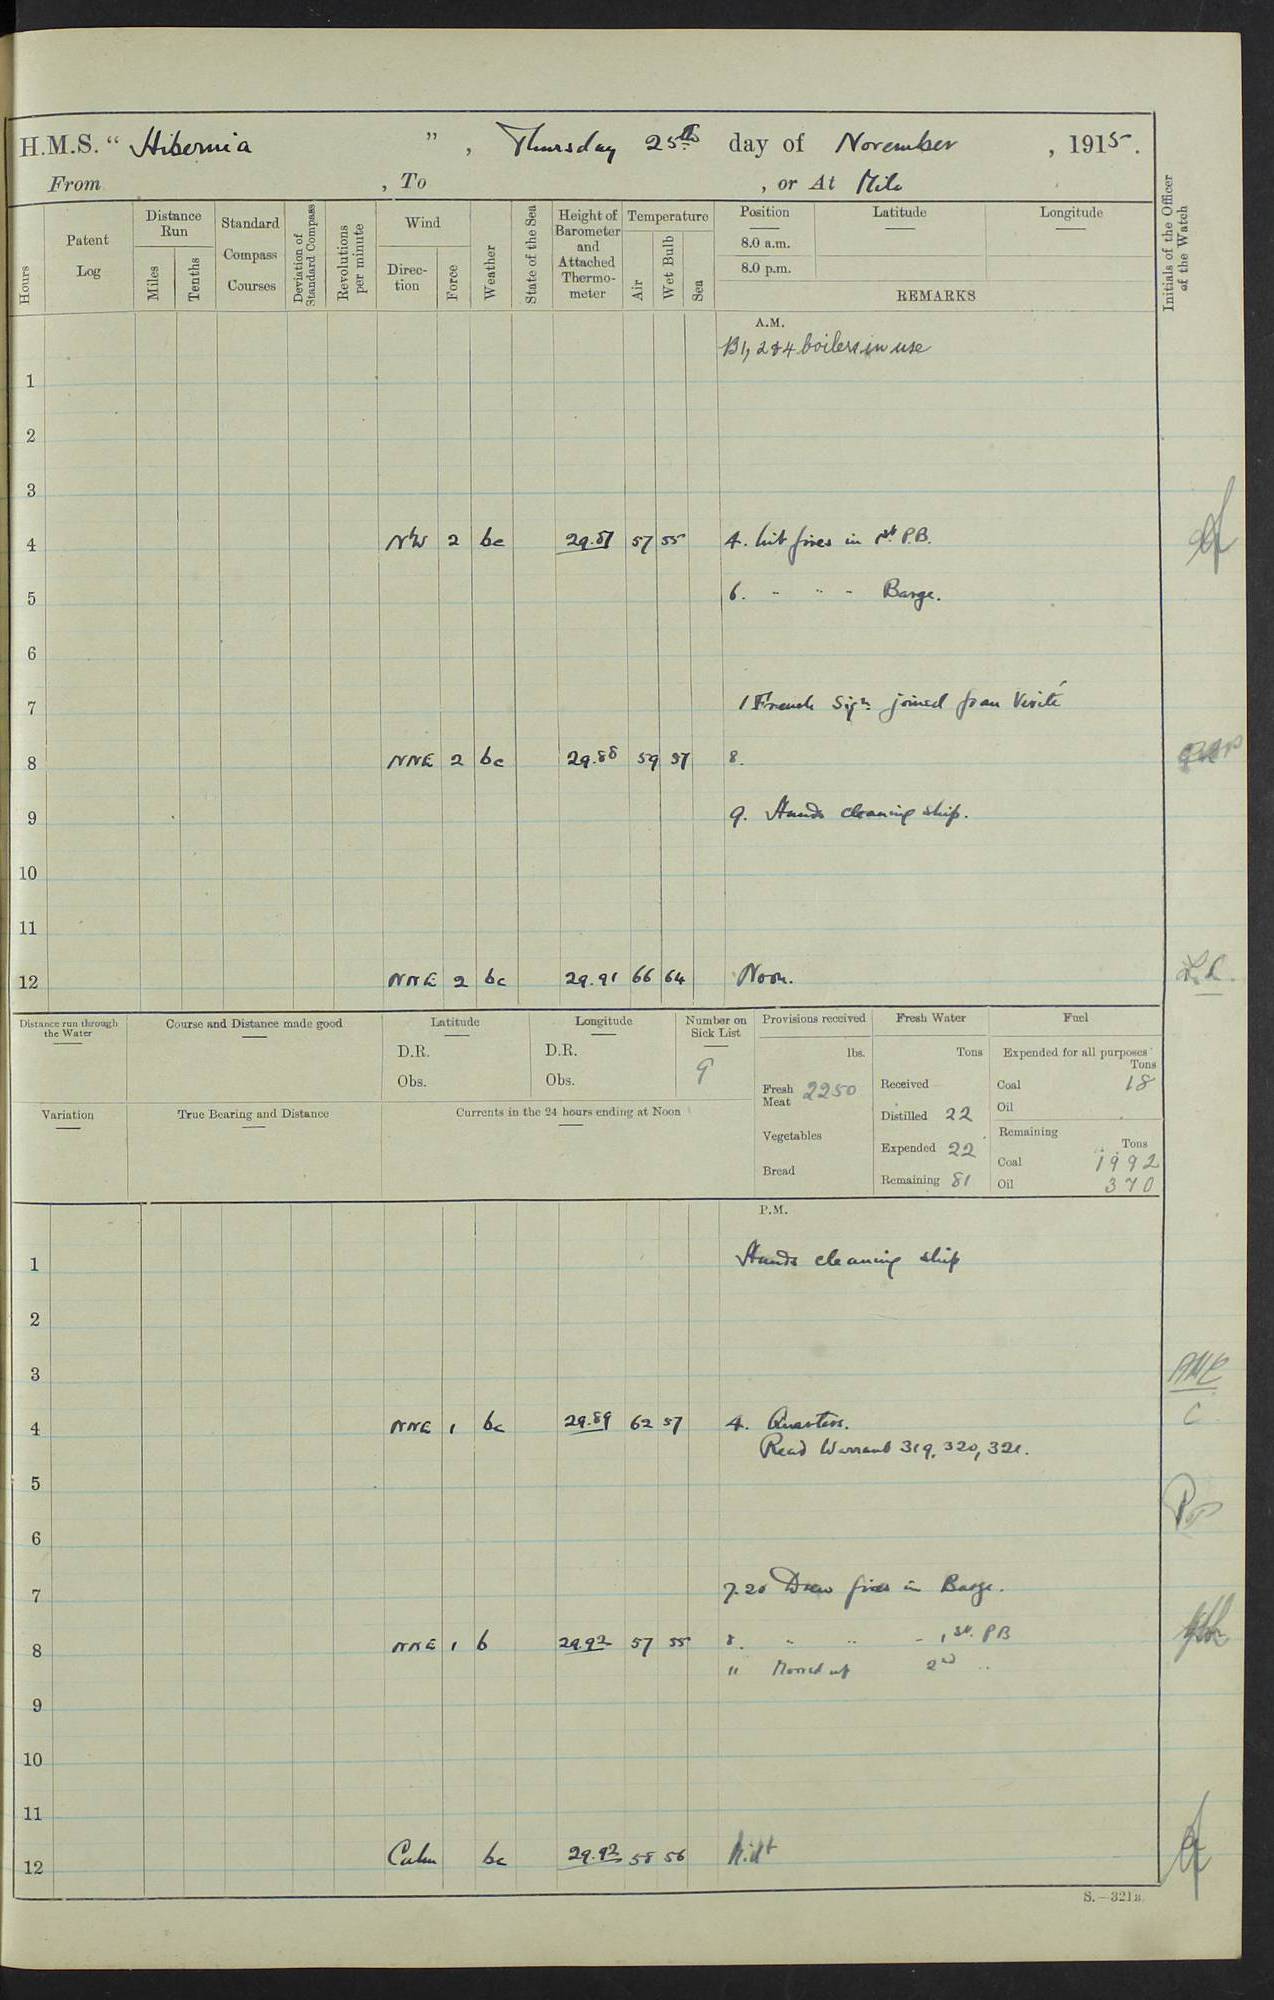 H.M.S. “ Hibernia ” , Thursday 25th day of November , 1915.
From , To , or At Milo
Hours
Patent Log
Distance Run
Miles
Tenths
Standard Compass Courses
Deviation of Standard Compass
Revolutions per minute
Wind
Direc- tion
Force
Weather
State of the Sea
Height of Barometer and Attached Thermo- meter
Temperature
Air
Wet Bulb
Sea
Position Latitude Longitude
8.0 a.m.
8.0 p.m.
REMARKS
Initials of the Officer of the Watch
A.M.
B1, 2 & 4 boilers in use
1
2
3
4 NW 2 bc 29.87 57 55 4. Lit fires in 1st P.B.
5 6. " " " Barge.
6
7 1 French Sign joined from Verité
8 NNE 2 bc 29.88 59 57 8.
9 9. Hands cleaning ship.
10
11
12 NNE 2 bc 29.91 66 64 Noon.
Distance run through the Water
Course and Distance made good
Latitude
D.R.
Obs.
Longitude
D.R.
Obs.
Number on Sick List
9
Provisions received
lbs.
Fresh Meat 2250
Vegetables
Bread
Fresh Water
Tons
Received
Distilled 22
Expended 22
Remaining 81
Fuel
Expended for all purposes
Tons
Coal 18
Oil
Remaining
Tons
Coal 1992
Oil 370
Variation
True Bearing and Distance
Currents in the 24 hours ending at Noon
P.M.
1 Hands cleaning ship
2
3
4 NNE 1 bc 29.89 62 57 4. Quarters.
Read Warrant 319, 320, 321.
5
6
7 7.20 Drew fires in Barge.
8 NNE 1 b 29.92 57 55 8. " " " 1st PB
" Moored up 2nd "
9
10
11
12 Calm bc 29.92 58 56 Midt
S.—321B.